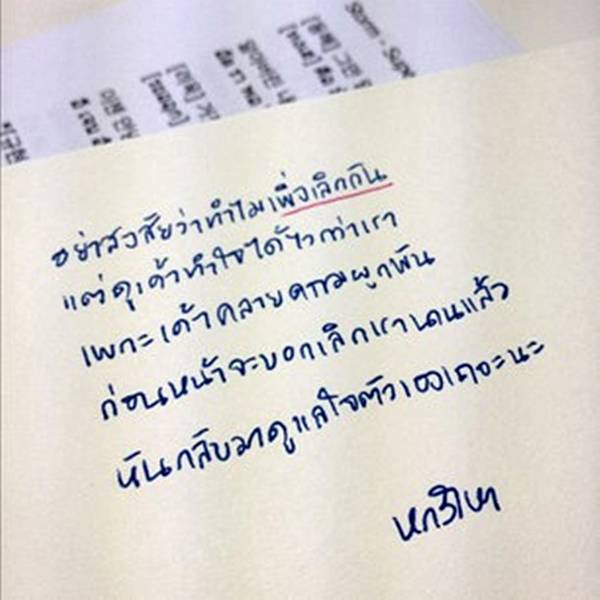 อย่าสงสัยว่าทำไมเพิ่งเลิกกัน
แต่ดูเค้าทำใจได้ไวกว่าเรา
เพราะเค้าคลายความผูกพัน
ก่อนหน้าจะบอกเลิกเรานานแล้ว
หันกลับมาดูแลใจตัวเองเถอะนะ